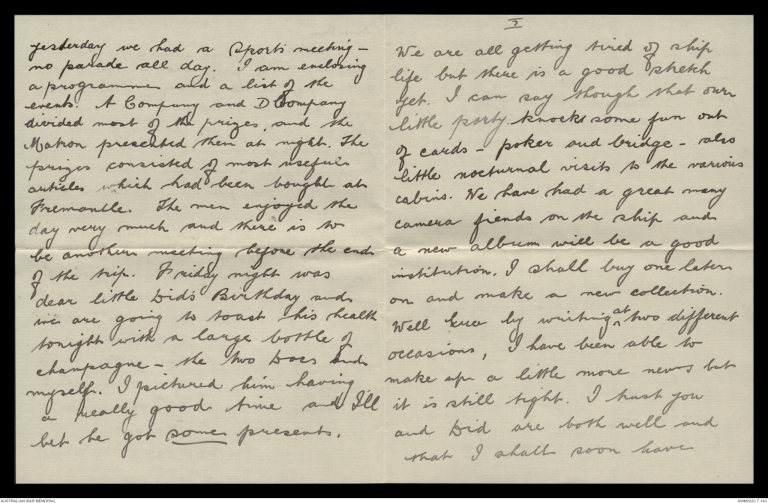 yesterday we had a sports meeting –
no parade all day. I am enclosing
a programme and a list of the
events. A Company and D Company
divided most of the prizes, and the
Matron presented them at night. The
prizes consisted of most useful
articles which had been bought at
Fremantle. The men enjoyed the
day very much and there is to
be another meeting before the end
of the trip. Friday night was
dear little Did's Birthday and
we are going to toast his health
tonight with a large bottle of
champagne – the two Docs and
myself. I pictured him having
a really good time and I'll
bet he got some presents.
5
We are all getting tired of ship
life but there is a good stretch
yet. I can say though that our
little party knocks some fun out
of cards – poker and bridge – also
little nocturnal visits to the various
cabins. We have had a great many
camera fiends on the ship and
a new album will be a good
institution. I shall buy one later
on and make a new collection.
Well by writing at two different
occasions, I have been able to
make up a little more news but
it is still tight. I trust you
and Did are both well and
that I shall soon have
AUSTRALIAN WAR MEMORIAL